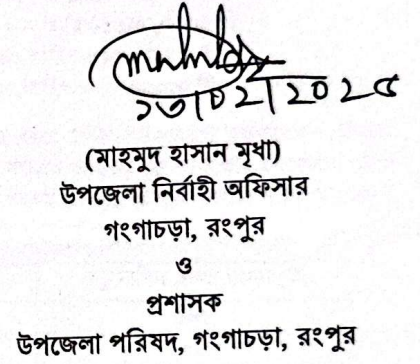 ২৩/০২/২০২৫
(মাহমুদ হাসান মৃধা)
উপজেলা নির্বাহী অফিসার
গংগাচড়া, রংপুর
ও
প্রশাসক
উপজেলা পরিষদ, গংগাচড়া, রংপুর